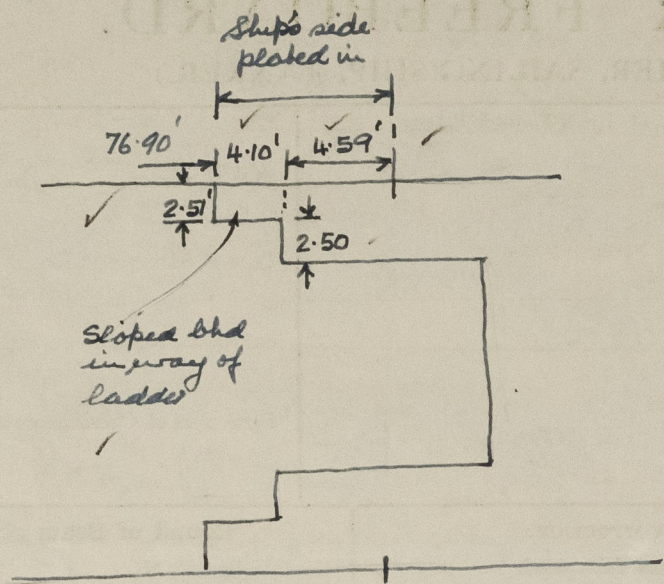 Ship's side
plated in
76.90'
4.10'
4.59'
2.51'
2.50
Sloped bhd
in way of
ladder